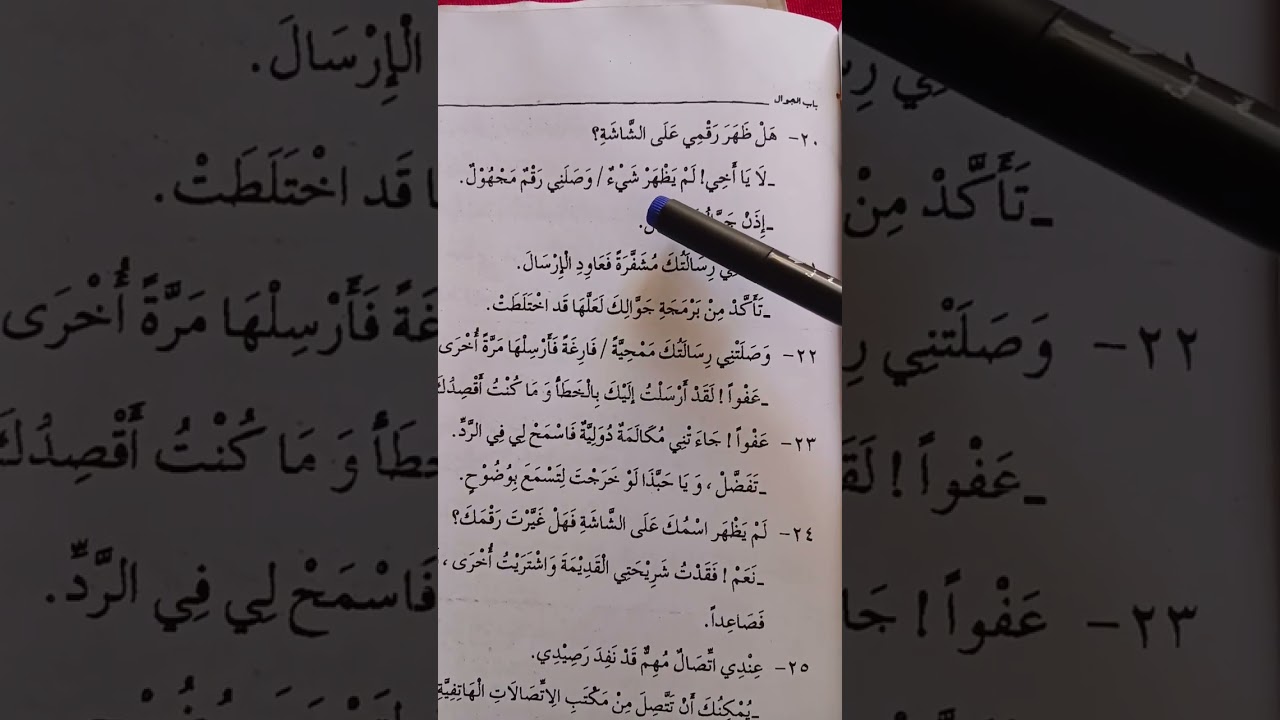 باب الجوال
٢٠- هَلْ ظَهَرَ رَقْمِي عَلَى الشَّاشَةِ؟
ـ لَا يَا أَخِي! لَمْ يَظْهَرْ شَيْءٌ / وَصَلَنِي رَقْمٌ مَجْهُوْلٌ.
ـ إِذَنْ
رِسَالَتُكَ مُشَفَّرَةً فَعَاوِدِ الْإِرْسَالَ.
ـ تَأَكَّدْ مِنْ بَرْمَجَةِ جَوَّالِكَ لَعَلَّهَا قَد اخْتَلَطَتْ.
٢٢- وَصَلَتْنِي رِسَالَتُكَ مَمْحِيَّةً / فَارِغَةً فَأَرْسِلْهَا مَرَّةً أُخْرَى
ـ عَفْواً! لَقَدْ أَرْسَلْتُ إِلَيْكَ بِالْخَطَأِ وَ مَا كُنْتُ أَقْصِدُكَ
٢٣- عَفْواً! جَاءَتْنِي مُكَالَمَةٌ دُوَلِيَّةٌ فَاسْمَحْ لِي فِي الرَّدِّ.
ـ تَفَضَّلْ، وَ يَا حَبَّذَا لَوْ خَرَجْتَ لِتَسْمَعَ بِوُضُوْحٍ.
٢٤- لَمْ يَظْهَر اسْمُكَ عَلَى الشَّاشَةِ فَهَلْ غَيَّرْتَ رَقْمَكَ؟
ـ نَعَمْ! فَقَدْتُ شَرِيْحَتِي الْقَدِيْمَةَ وَاشْتَرَيْتُ أُخْرَى،
فَصَاعِداً.
٢٥- عِنْدِي اتِّصَالٌ مُهِمٌّ قَدْ نَفِدَ رَصِيْدِي.
ـ يُمْكِنُكَ أَنْ تَتَّصِلَ مِنْ مَكْتَبِ الِاتِّصَالَاتِ الْهَاتِفِيَّةِ